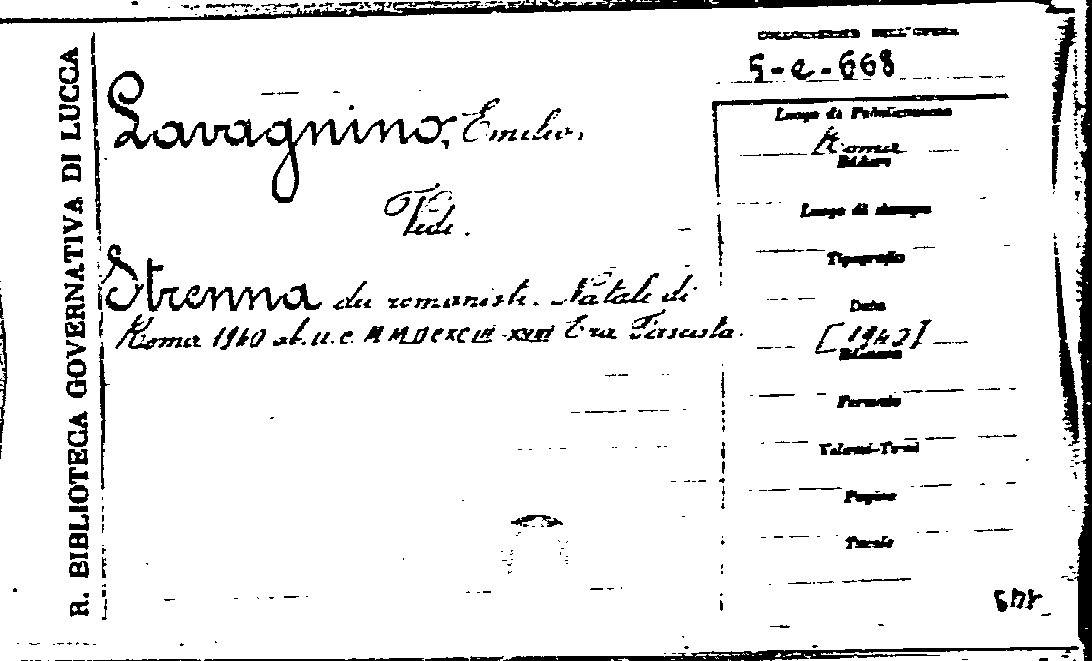 R. BIBLIOTECA GOVERNATIVA DI LUCCA
COLLOCAZIONE DELL'OPERA
5-e-668
Lavagnino, Emilio.
Vedi.
Strenna dei romanisti. Natale di
Roma 1940 ab. u. c. MMDCXCIII-XVIII Era Fascista.
Luogo di Pubblicazione
Roma
Editore
Luogo di stampa
Tipografia
Data
[1940]
Edizione
Formato
Volumi-Tomi
Pagine
Tavole